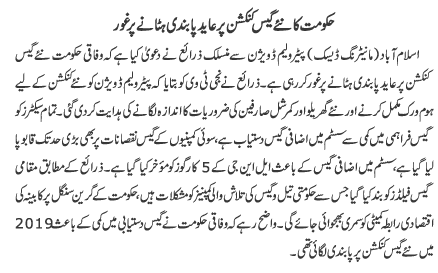 حکومت کا نئے گیس کنکشن پر عاید پابندی ہٹانے پر غور
اسلام آباد (مانیٹرنگ ڈیسک) پیٹرولیم ڈویژن سے منسلک ذرائع نے دعویٰ کیا ہے کہ وفاقی حکومت نئے گیس
کنکشن پر عاید پابندی ہٹانے پر غور کر رہی ہے۔ ذرائع نے نجی ٹی وی کو بتایا کہ پیٹرولیم ڈویژن کو نئے کنکشن کے لیے
ہوم ورک مکمل کرنے اور نئے گھریلو اور کمرشل صارفین کی ضروریات کا اندازہ لگانے کی ہدایت کر دی گئی۔ تمام سیکٹرز کو
گیس فراہمی میں کمی سے سسٹم میں اضافی گیس دستیاب ہے، سوئی کمپنیوں کے گیس نقصانات پر بھی بڑی حد تک قابو پا
لیا گیا ہے، سسٹم میں اضافی گیس کے باعث ایل این جی کے 5 کارگوز کو مؤخر کیا گیا ہے۔ ذرائع کے مطابق مقامی
گیس فیلڈز کو بند کیا گیا جس سے حکومتی تیل و گیس کی تلاش والی کمپنیز کو مشکلات ہیں، حکومت کے گرین سگنل پر کابینہ کی
اقتصادی رابطہ کمیٹی کو سمری بھجوائی جائے گی۔ واضح رہے کہ وفاقی حکومت نے گیس دستیابی میں کمی کے باعث 2019
میں نئے گیس کنکشن پر پابندی لگائی تھی۔